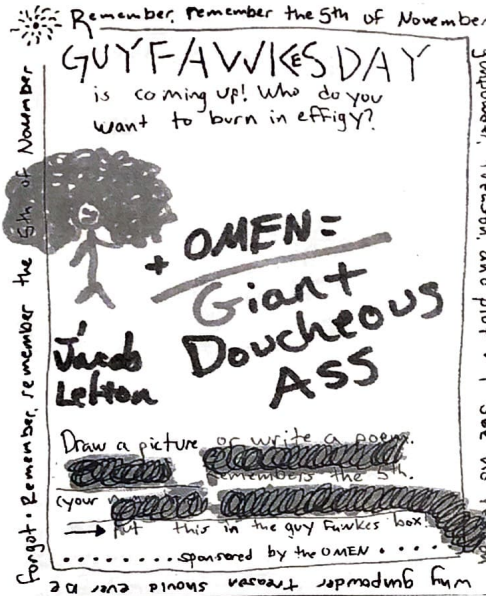 Remember, remember the 5th of November
GUY FAWKES DAY
is coming up! Who do you
want to burn in effigy?
+ OMEN =
Giant
Doucheous
ASS
Jacob
Lefton
Draw a picture or write a poem.
remembers the 5th.
(your
put this in the guy Fawkes box!
sponsored by the OMEN
gunpowder, treason, and plot. I see no
why gunpowder treason should ever be
forgot. Remember, remember the 5th of November